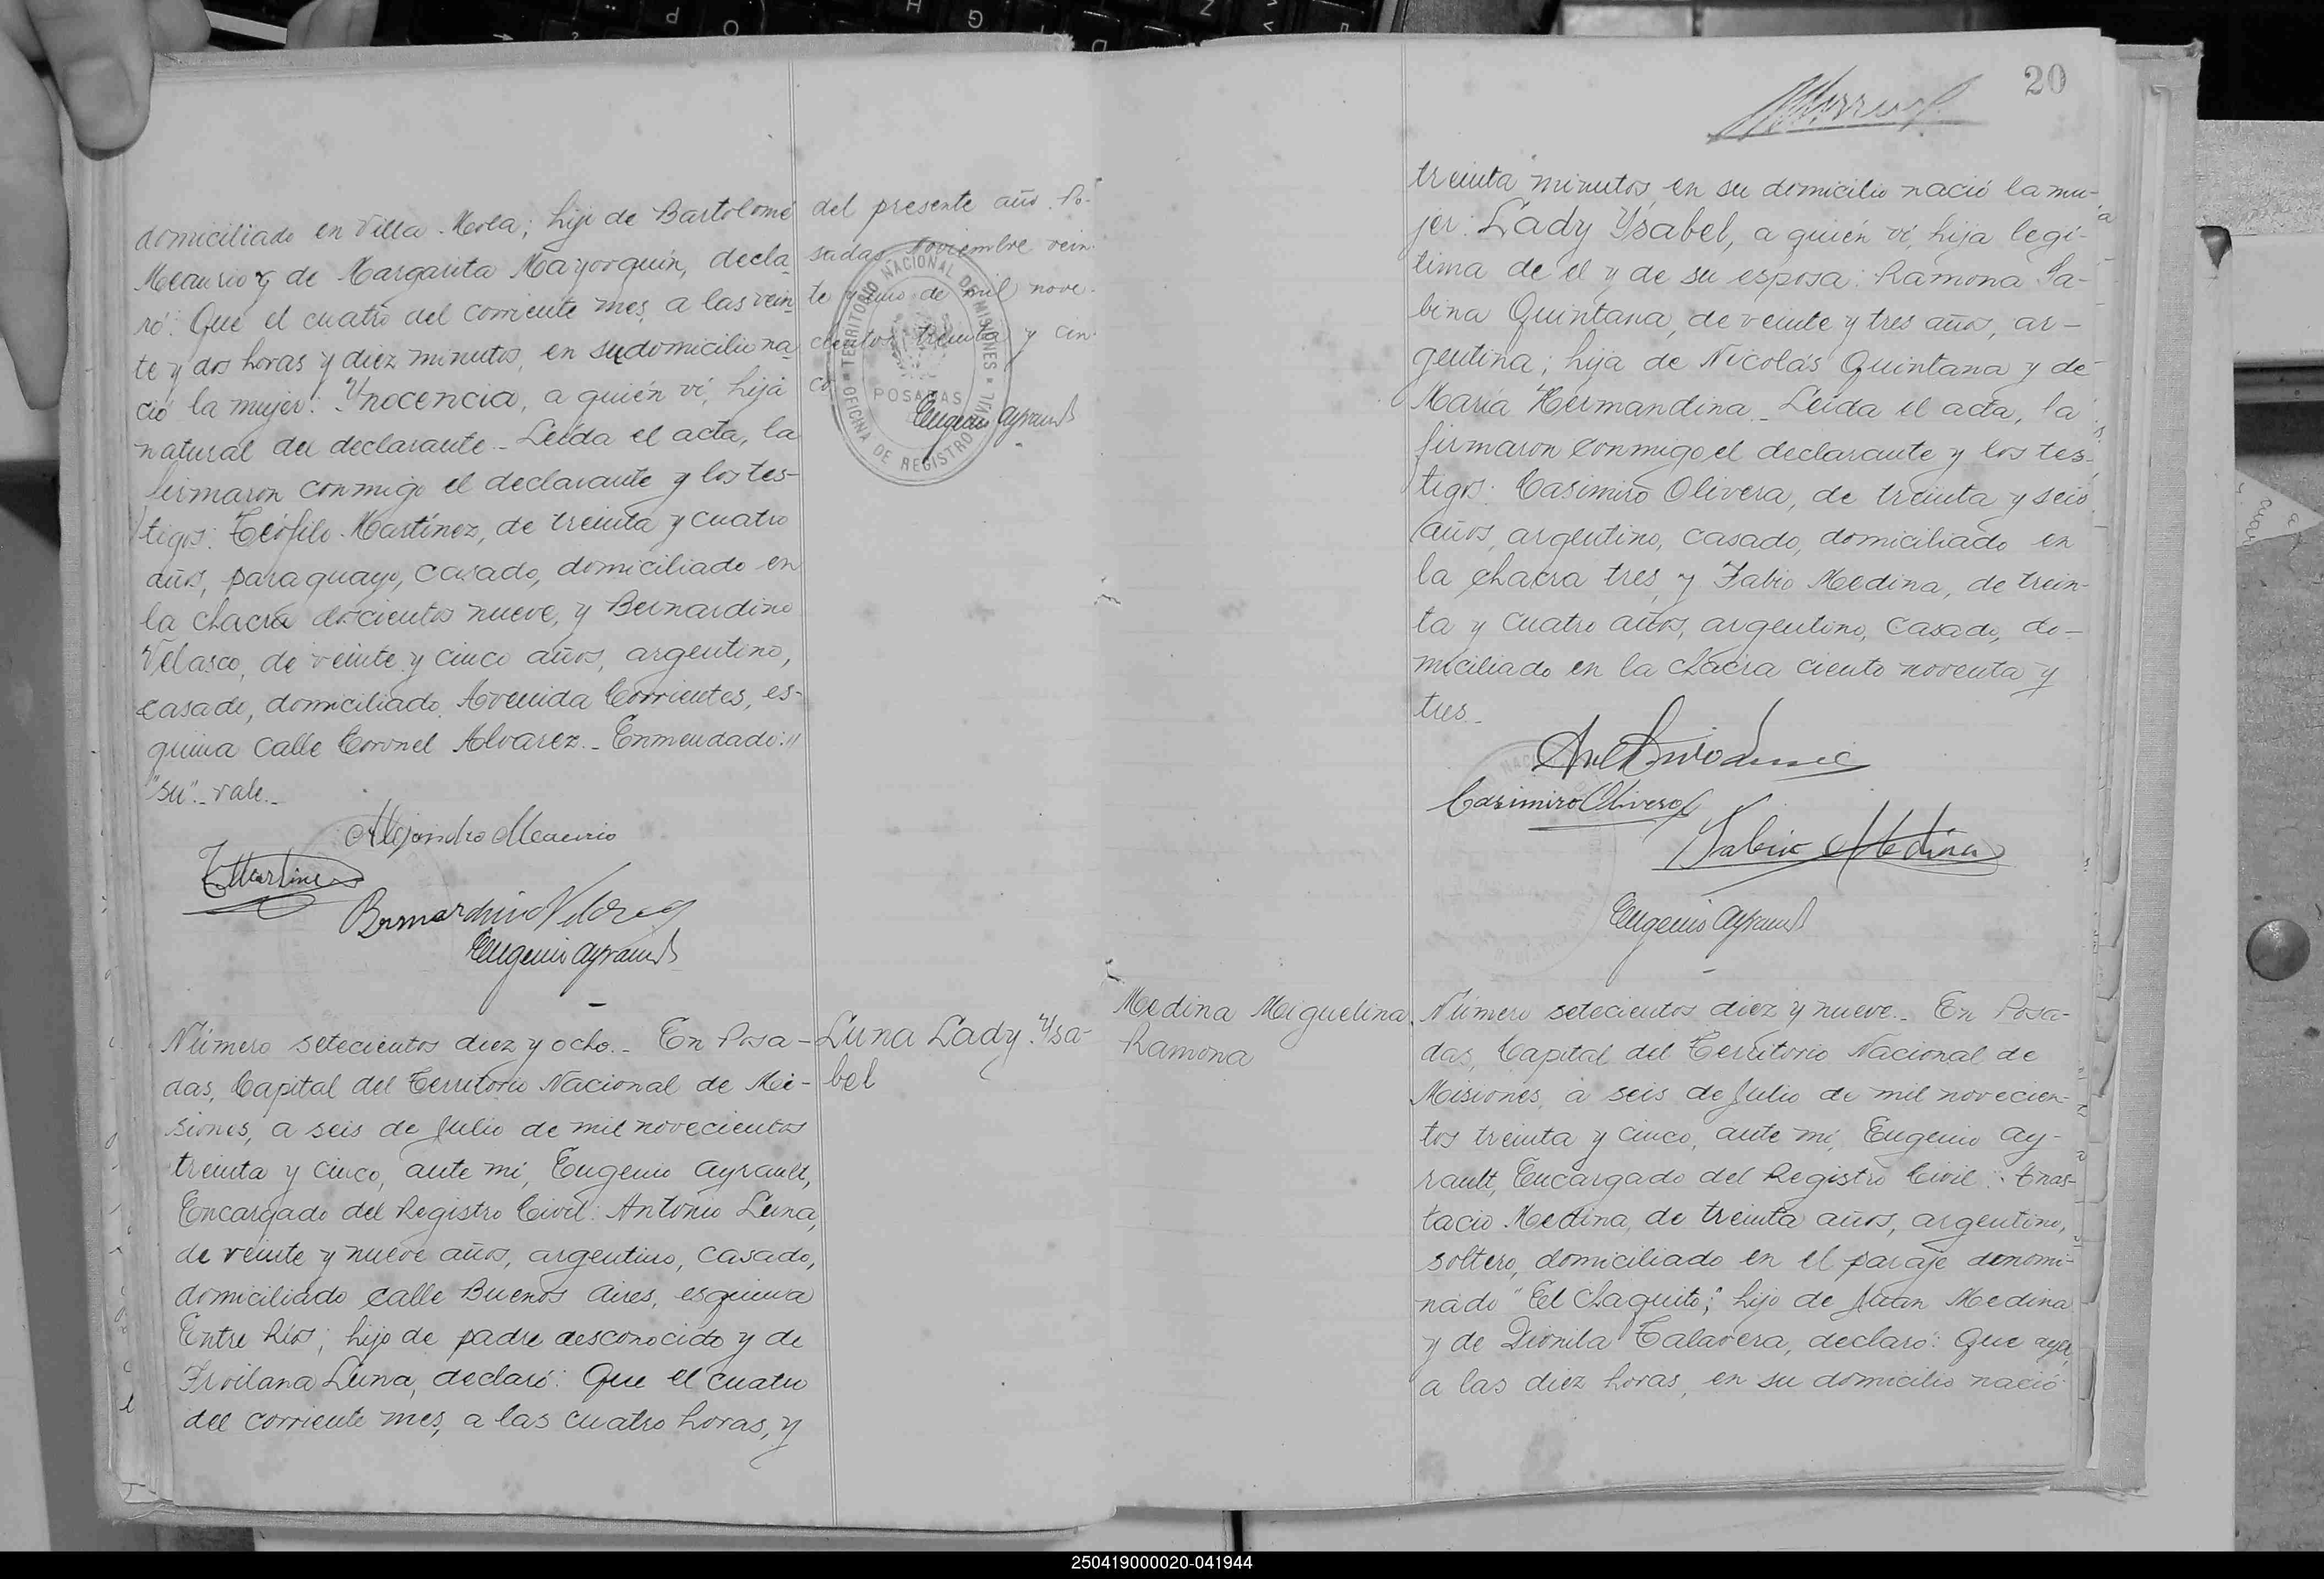 domiciliado en Villa Mola; hijo de Bartolomé
Meaurio y de Margarita Mayorquin, decla-
ró: Que el cuatro del corriente mes, a las vein-
te y dos horas y diez minutos, en su domicilio na-
ció la mujer: Ynocencia, a quién ví, hija
natural del declarante.- Leída el acta, la
firmaron conmigo el declarante y los tes-
tigos: Teófilo Martínez, de treinta y cuatro
años, paraguayo, casado, domiciliado en
la chacra doscientos nueve, y Bernardino
Velasco, de veinte y cinco años, argentino,
casado, domiciliado Avenida Corrientes, es-
quina calle Coronel Alvarez.- Enmendado:
"su".- vale.-
Alejandro Meaurio
T. Martinez
Bernardino Velazco
Eugenio Ayrault
del presente año. Po-
sadas, Noviembre vein-
te y uno de mil nove-
cientos treinta y cin-
co
TERRITORIO NACIONAL DE MISIONES
POSADAS
OFICINA DE REGISTRO CIVIL
Eugenio Ayrault
Número setecientos diez y ocho.- En Posa-
das, Capital del Territorio Nacional de Mi-
siones, a seis de Julio de mil novecientos
treinta y cinco, ante mí, Eugenio Ayrault,
Encargado del Registro Civil: Antonio Luna,
de veinte y nueve años, argentino, casado,
domiciliado calle Buenos Aires, esquina
Entre Ríos; hijo de padre desconocido y de
Froilana Luna, declaró: Que el cuatro
del corriente mes, a las cuatro horas, y
Luna Lady Ysa-
bel
20
treinta minutos, en su domicilio nació la mu-
jer: Lady Ysabel, a quién ví, hija legí-
tima de el y de su esposa: Ramona Sa-
bina Quintana, de veinte y tres años, ar-
gentina; hija de Nicolás Quintana y de
María Hermandina.- Leída el acta, la
firmaron conmigo el declarante y los tes-
tigos: Casimiro Olivera, de treinta y seis
años, argentino, casado, domiciliado en
la chacra tres, y Fabio Medina, de trein-
ta y cuatro años, argentino, casado, do-
miciliado en la chacra ciento noventa y
tres.-
Casimiro Olivera
Fabio Medina
Eugenio Ayrault
Medina Miguelina
Ramona
Número setecientos diez y nueve.- En Posa-
das, Capital del Territorio Nacional de
Misiones, a seis de Julio de mil novecien-
tos treinta y cinco, ante mí, Eugenio Ay-
rault, Encargado del Registro Civil: Anas-
tacio Medina, de treinta años, argentino,
soltero, domiciliado en el paraje denomi-
nado "El Chaquito"; hijo de Juan Medina
y de Dionila Talavera, declaró: Que ayer,
a las diez horas, en su domicilio nació
250419000020-041944